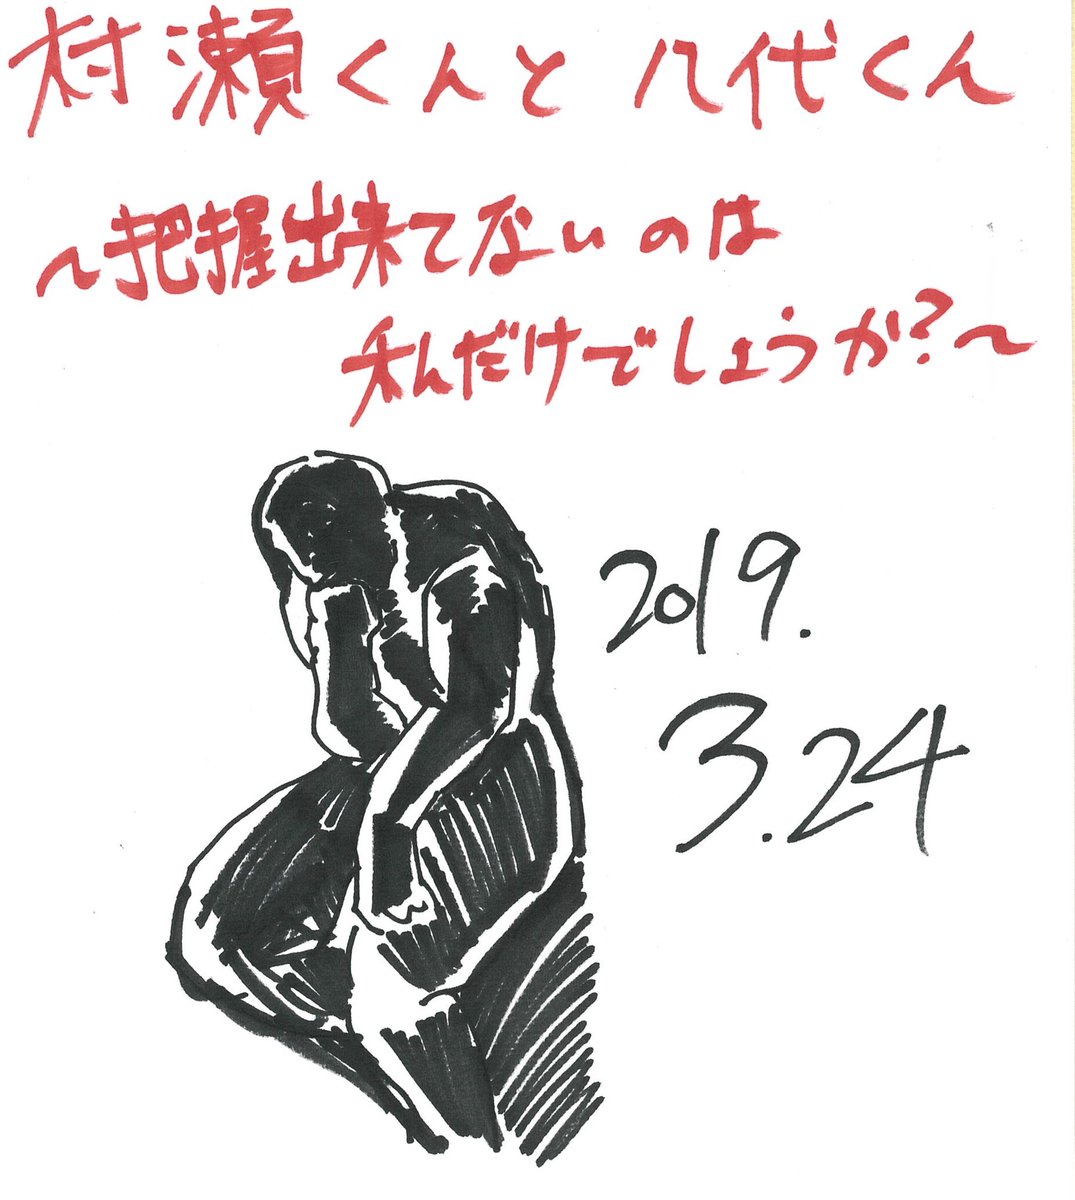 村瀬くんと 八代くん
〜把握出来てないのは
私だけでしょうか?〜
2019.
3.24